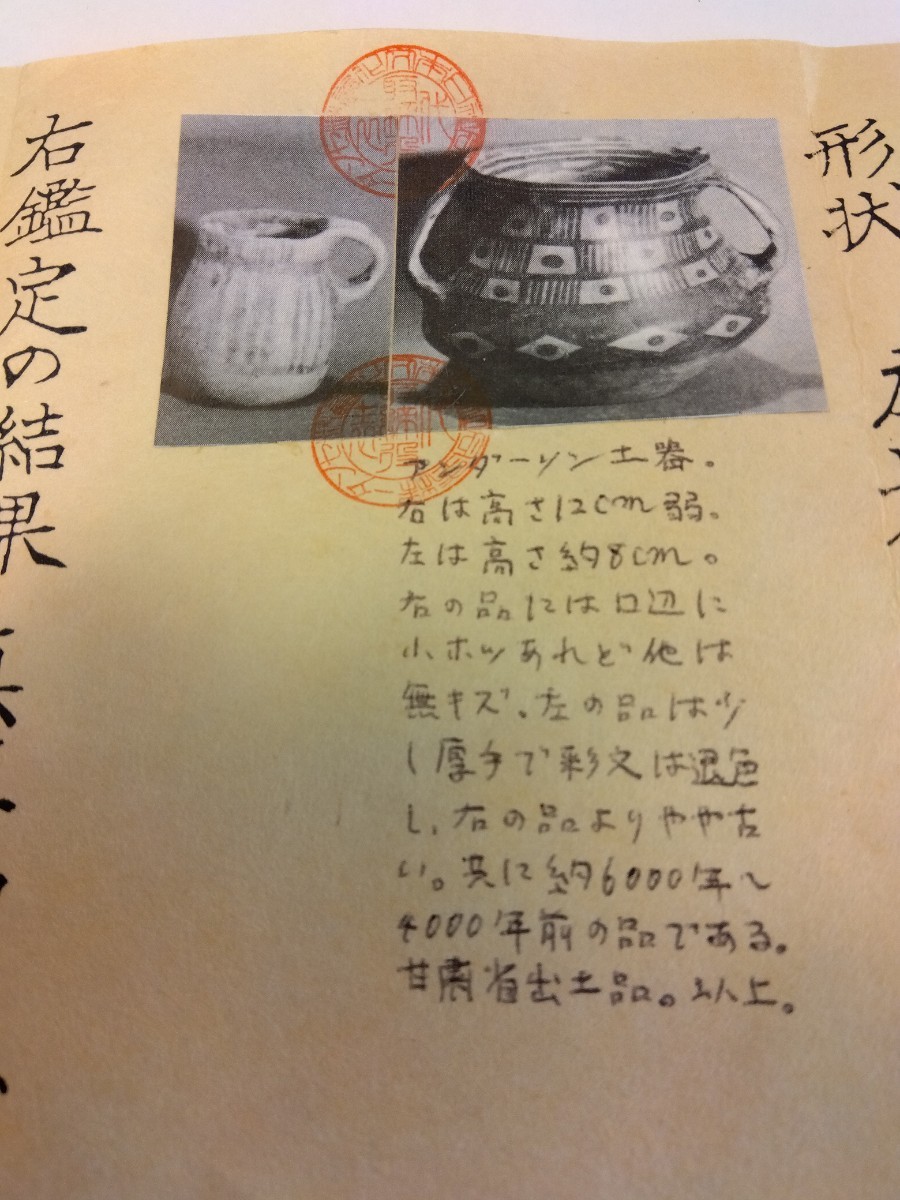 形状
アンダーソン土器。
右は高さ12cm弱。
左は高さ約8cm。
右の品には口辺に
小ホツあれど他は
無キズ、左の品は少
し厚手で彩文は退色
し、右の品よりやや古
い。共に約6000年〜
4000年前の品である。
甘粛省出土品。以上。
右鑑定の結果